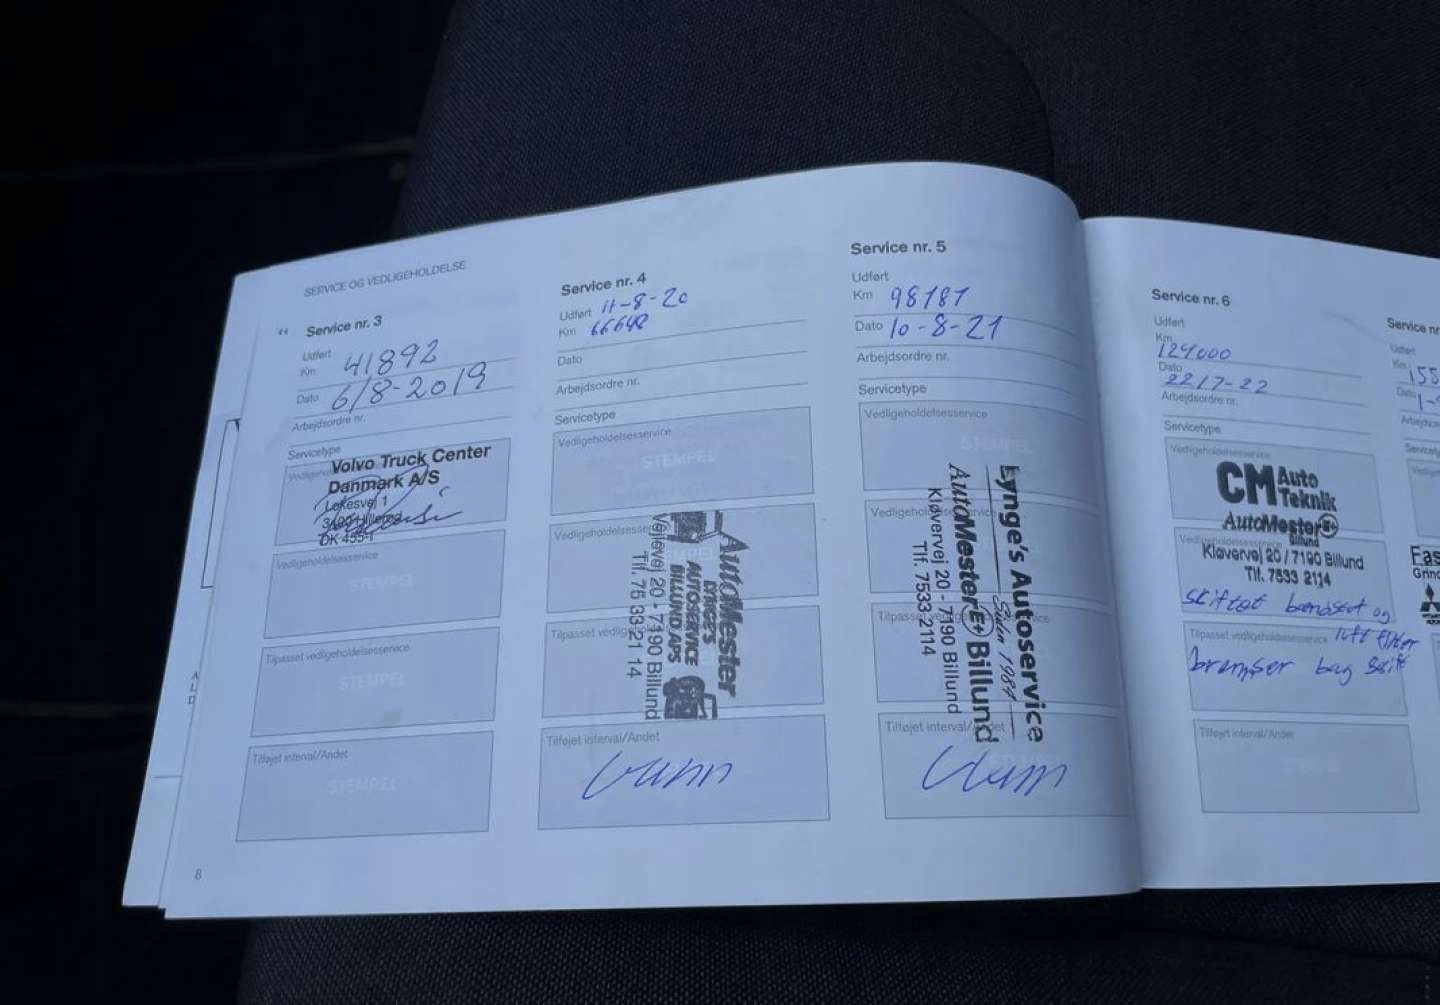 SERVICE OG VEDLIGEHOLDELSE
Service nr. 3
Udført
Km 41892
Dato 6/8-2019
Arbejdsordre nr.
Servicetype
Volvo Truck Center
Danmark A/S
DK 455-1
Vedligeholdelsesservice
STEMPEL
Tilpasset vedligeholdelsesservice
STEMPEL
Tilføjet interval/Andet
STEMPEL
8
Service nr. 4
Udført 11-8-20
Km 66648
Dato
Arbejdsordre nr.
Servicetype
Vedligeholdelsesservice
STEMPEL
AutoMester
LYNGE'S
AUTOSERVICE
BILLUND APS
Vejlevej 20 - 7190 Billund
Tlf. 75 33 21 14
Tilføjet interval/Andet
Service nr. 5
Udført
Km 98181
Dato 10-8-21
Arbejdsordre nr.
Servicetype
Vedligeholdelsesservice
STEMPEL
Lynge's Autoservice
Siden 1984
AutoMester E+ Billund
Kløvervej 20 - 7190 Billund
Tlf. 7533 2114
Service nr. 6
Udført
Km
124000
Dato
22/7-22
Arbejdsordre nr.
Servicetype
Vedligeholdelsesservice
CM Auto
Teknik
AutoMester E+
Billund
Kløvervej 20 / 7190 Billund
Tlf. 7533 2114
skiftet og
Tilpasset vedligeholdelsesservice luft filter
bremser bag skift
Tilføjet interval/Andet
Service nr
Udført
Km 155
Dato